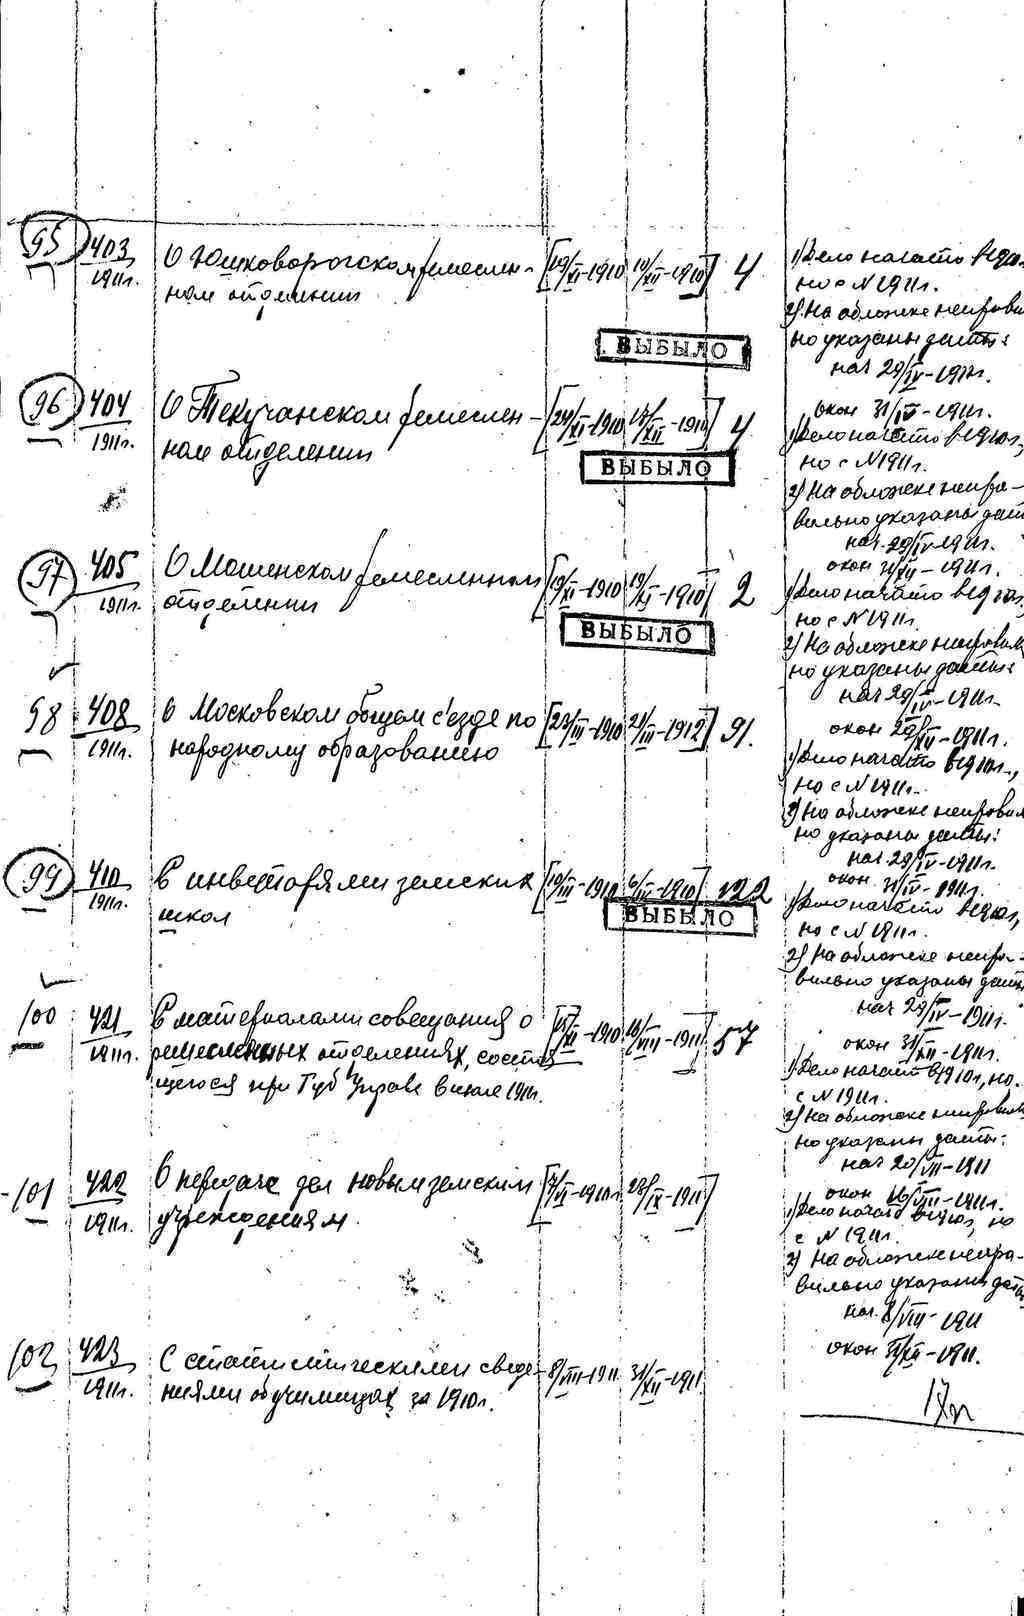 95 403 О Юшковорогском ремеслен- [19/XI-1910 10/XII-1910] 4 1) Дело начато в 1910
1911г. ном отделении но с N 1911г.
2) На обложке неправи
но указаны даты:
ВЫБЫЛО
нач 29/IV-1911г.
окон 31/IV-1911г.
96 404 О Текучанском ремеслен- [24/XI-1910 -1910] 4 1) Дело начато в 1910г,
1911г. ном отделении но с N 1911г.
ВЫБЫЛО
2) На обложке непра-
вильно указаны дат
нач. 29/IV-1911г.
окон -1911г.
97 405 О Мошенском ремесленном [19/XI-1910 19/XI-1910] 2 1) Дело начато в 1910г,
1911г. отделении но с N 1911г.
ВЫБЫЛО
2) На обложке неправиль
но указаны даты:
нач 29/IV-1911г.
окон 29/XII-1911г.
98 408 О Московском общем с'езде по [23/III-1910 21/III-1912] 91. 1) Дело начато в 1910г.,
1911г. народному образованию но с N 1911г.
2) На обложке неправил
но указаны даты:
нач 29/IV-1911г.
окон 31/IV-1911г.
99 410 С инвентарями земских [19/III-1910 6/III-1910] 122 1) Дело начато в 1910г,
1911г. школ но с N 1911г.
ВЫБЫЛО
2) На обложке непра-
вильно указаны даты
нач 29/IV-1911г.
окон 31/XII-1911г.
100 421 С материалами совещания о [15/XI-1910 16/VIII-1911] 57 1) Дело начато в 1910г, но
1911г. ремесленных отделениях, состоя с N 1911г.
щегося при Губ Управе в июле 1911г.
2) На обложке неправиль
но указаны даты:
нач 20/VII-1911
окон 16/VIII-1911г.
101 422 О передаче дел новым земским [7/VI-1910г. 28/IX-1911] 1) Дело начато в 1910г, но
1911г. учреждениям. с N 1911г.
2) На обложке непра-
вильно указаны даты
нач. 8/VIII-1911
окон -1911.
102 423 С статистическими сведе- 8/VIII-1911 31/XII-1911
1911г. ниями об училищах за 1910г.